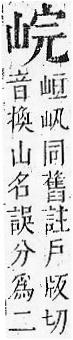 峘同舊註戶版切
音換山名誤分為二